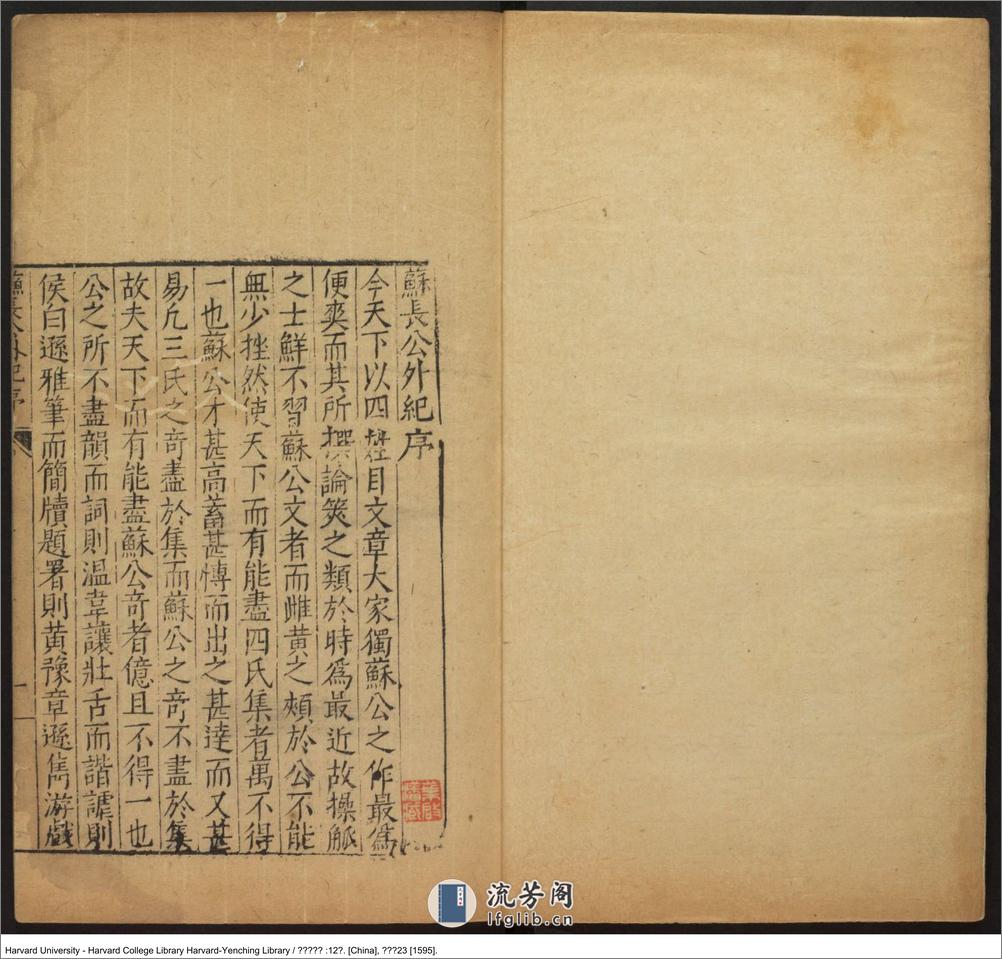 蘇長公外紀序
今天下以四姓目文章大家獨蘇公之作最爲
便爽而其所撰論筴之類於時爲最近故操觚
之士鮮不習蘇公文者而雌黃之頰於公不能
無少挫然使天下而有能盡四氏集者萬不得
一也蘇公才甚高蓄甚博而出之甚達而又甚
易凢三氏之奇盡於集而蘇公之奇不盡於集
故夫天下而有能盡蘇公奇者億且不得一也
公之所不盡韻而詞則温韋讓壯舌而諧謔則
侯白遜雅筆而簡牘題署則黃豫章遜雋游戲
蘇長公外紀序
一
流芳阁
lfglib.cn
Harvard University - Harvard College Library Harvard-Yenching Library / ????? :12?. [China], ???23 [1595].